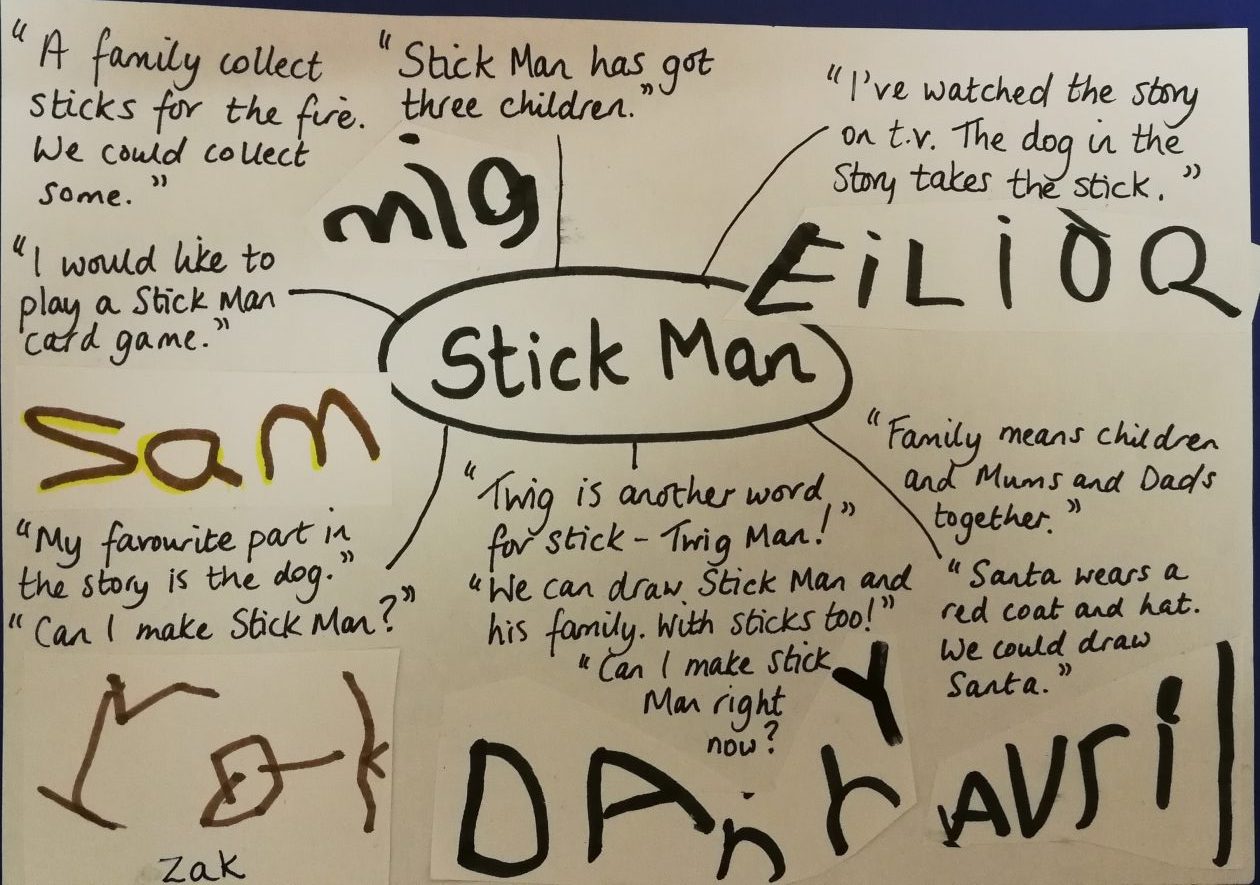 "A family collect
sticks for the fire.
We could collect
some."
"Stick Man has got
three children."
mia
"I've watched the story
on t.v. The dog in the
story takes the stick."
EiLiDQ
"I would like to
play a Stick Man
card game."
Sam
Stick Man
"My favourite part in
the story is the dog."
"Can I make Stick Man?"
Zak
zak
"Twig is another word
for stick - Twig Man!"
"We can draw Stick Man and
his family. With sticks too!"
"Can I make stick
Man right
now?
DAnrY
"Family means children
and Mums and Dads
together."
"Santa wears a
red coat and hat.
We could draw
Santa."
AVril